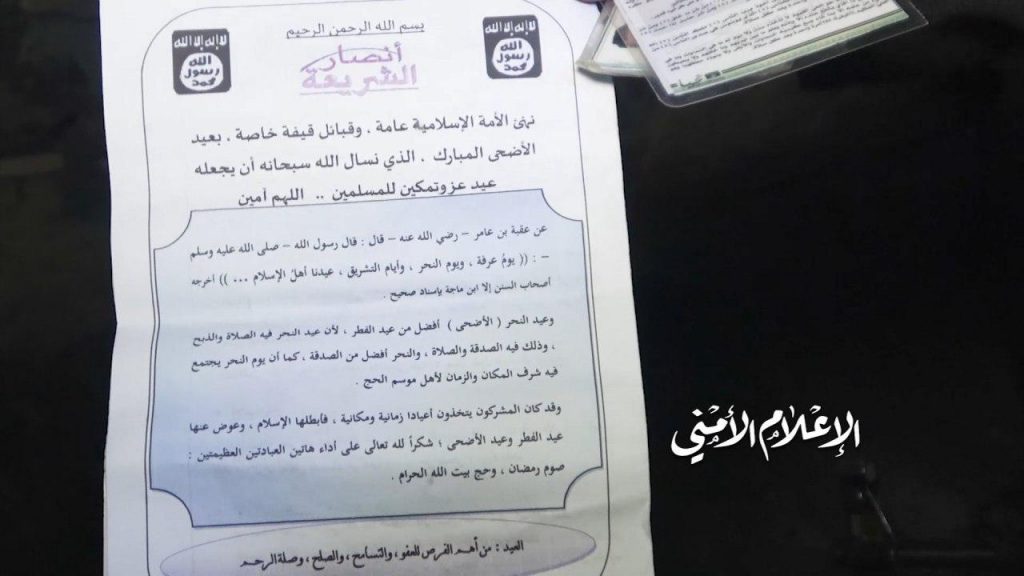 بسم الله الرحمن الرحيم
أنصار
الشريعة
لا إله إلا الله
الله
رسول
محمد
لا إله إلا الله
الله
رسول
محمد
نهنئ الأمة الإسلامية عامة ، وقبائل قيفة خاصة ، بعيد
الأضحى المبارك . الذي نسال الله سبحانه أن يجعله
عيد عز وتمكين للمسلمين .. اللهم آمين
عن عقبة بن عامر – رضي الله عنه – قال : قال رسول الله – صلى الله عليه وسلم
– : (( يومُ عرفة ، ويوم النحر ، وأيام التشريق ، عيدنا أهلَ الإسلام ... )) أخرجه
أصحاب السنن إلا ابن ماجة بإسناد صحيح .
وعيد النحر ( الأضحى ) أفضل من عيد الفطر ، لأن عيد النحر فيه الصلاة والذبح
، وذلك فيه الصدقة والصلاة ، والنحر أفضل من الصدقة ، كما أن يوم النحر يجتمع
فيه شرف المكان والزمان لأهل موسم الحج .
وقد كان المشركون يتخذون أعيادا زمانية ومكانية ، فأبطلها الإسلام ، وعوض عنها
عيد الفطر وعيد الأضحى ؛ شكراً لله تعالى على أداء هاتين العبادتين العظيمتين :
صوم رمضان ، وحج بيت الله الحرام .
العيد : من أهم الفرص للعفو ، والتسامح ، والصلح ، وصلة الرحم
الإعْلَام الأمْنِي